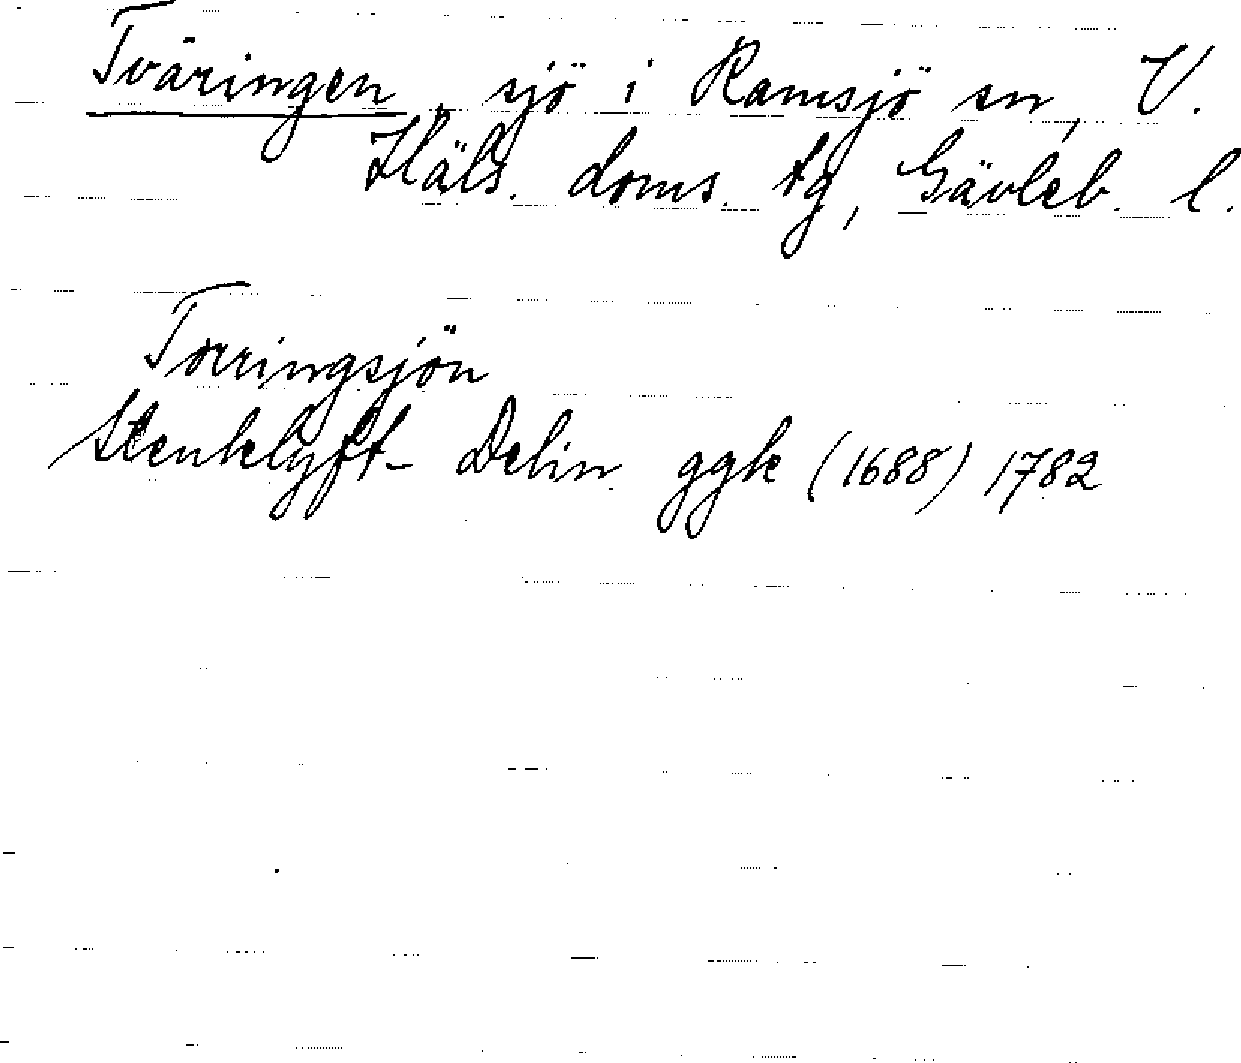 Tväringen, sjö i Ramsjö sn, V.
Häls. doms. tg, Gävleb. l.
Torringsjön
Stenklyft- Delin ggk (1688) 1782